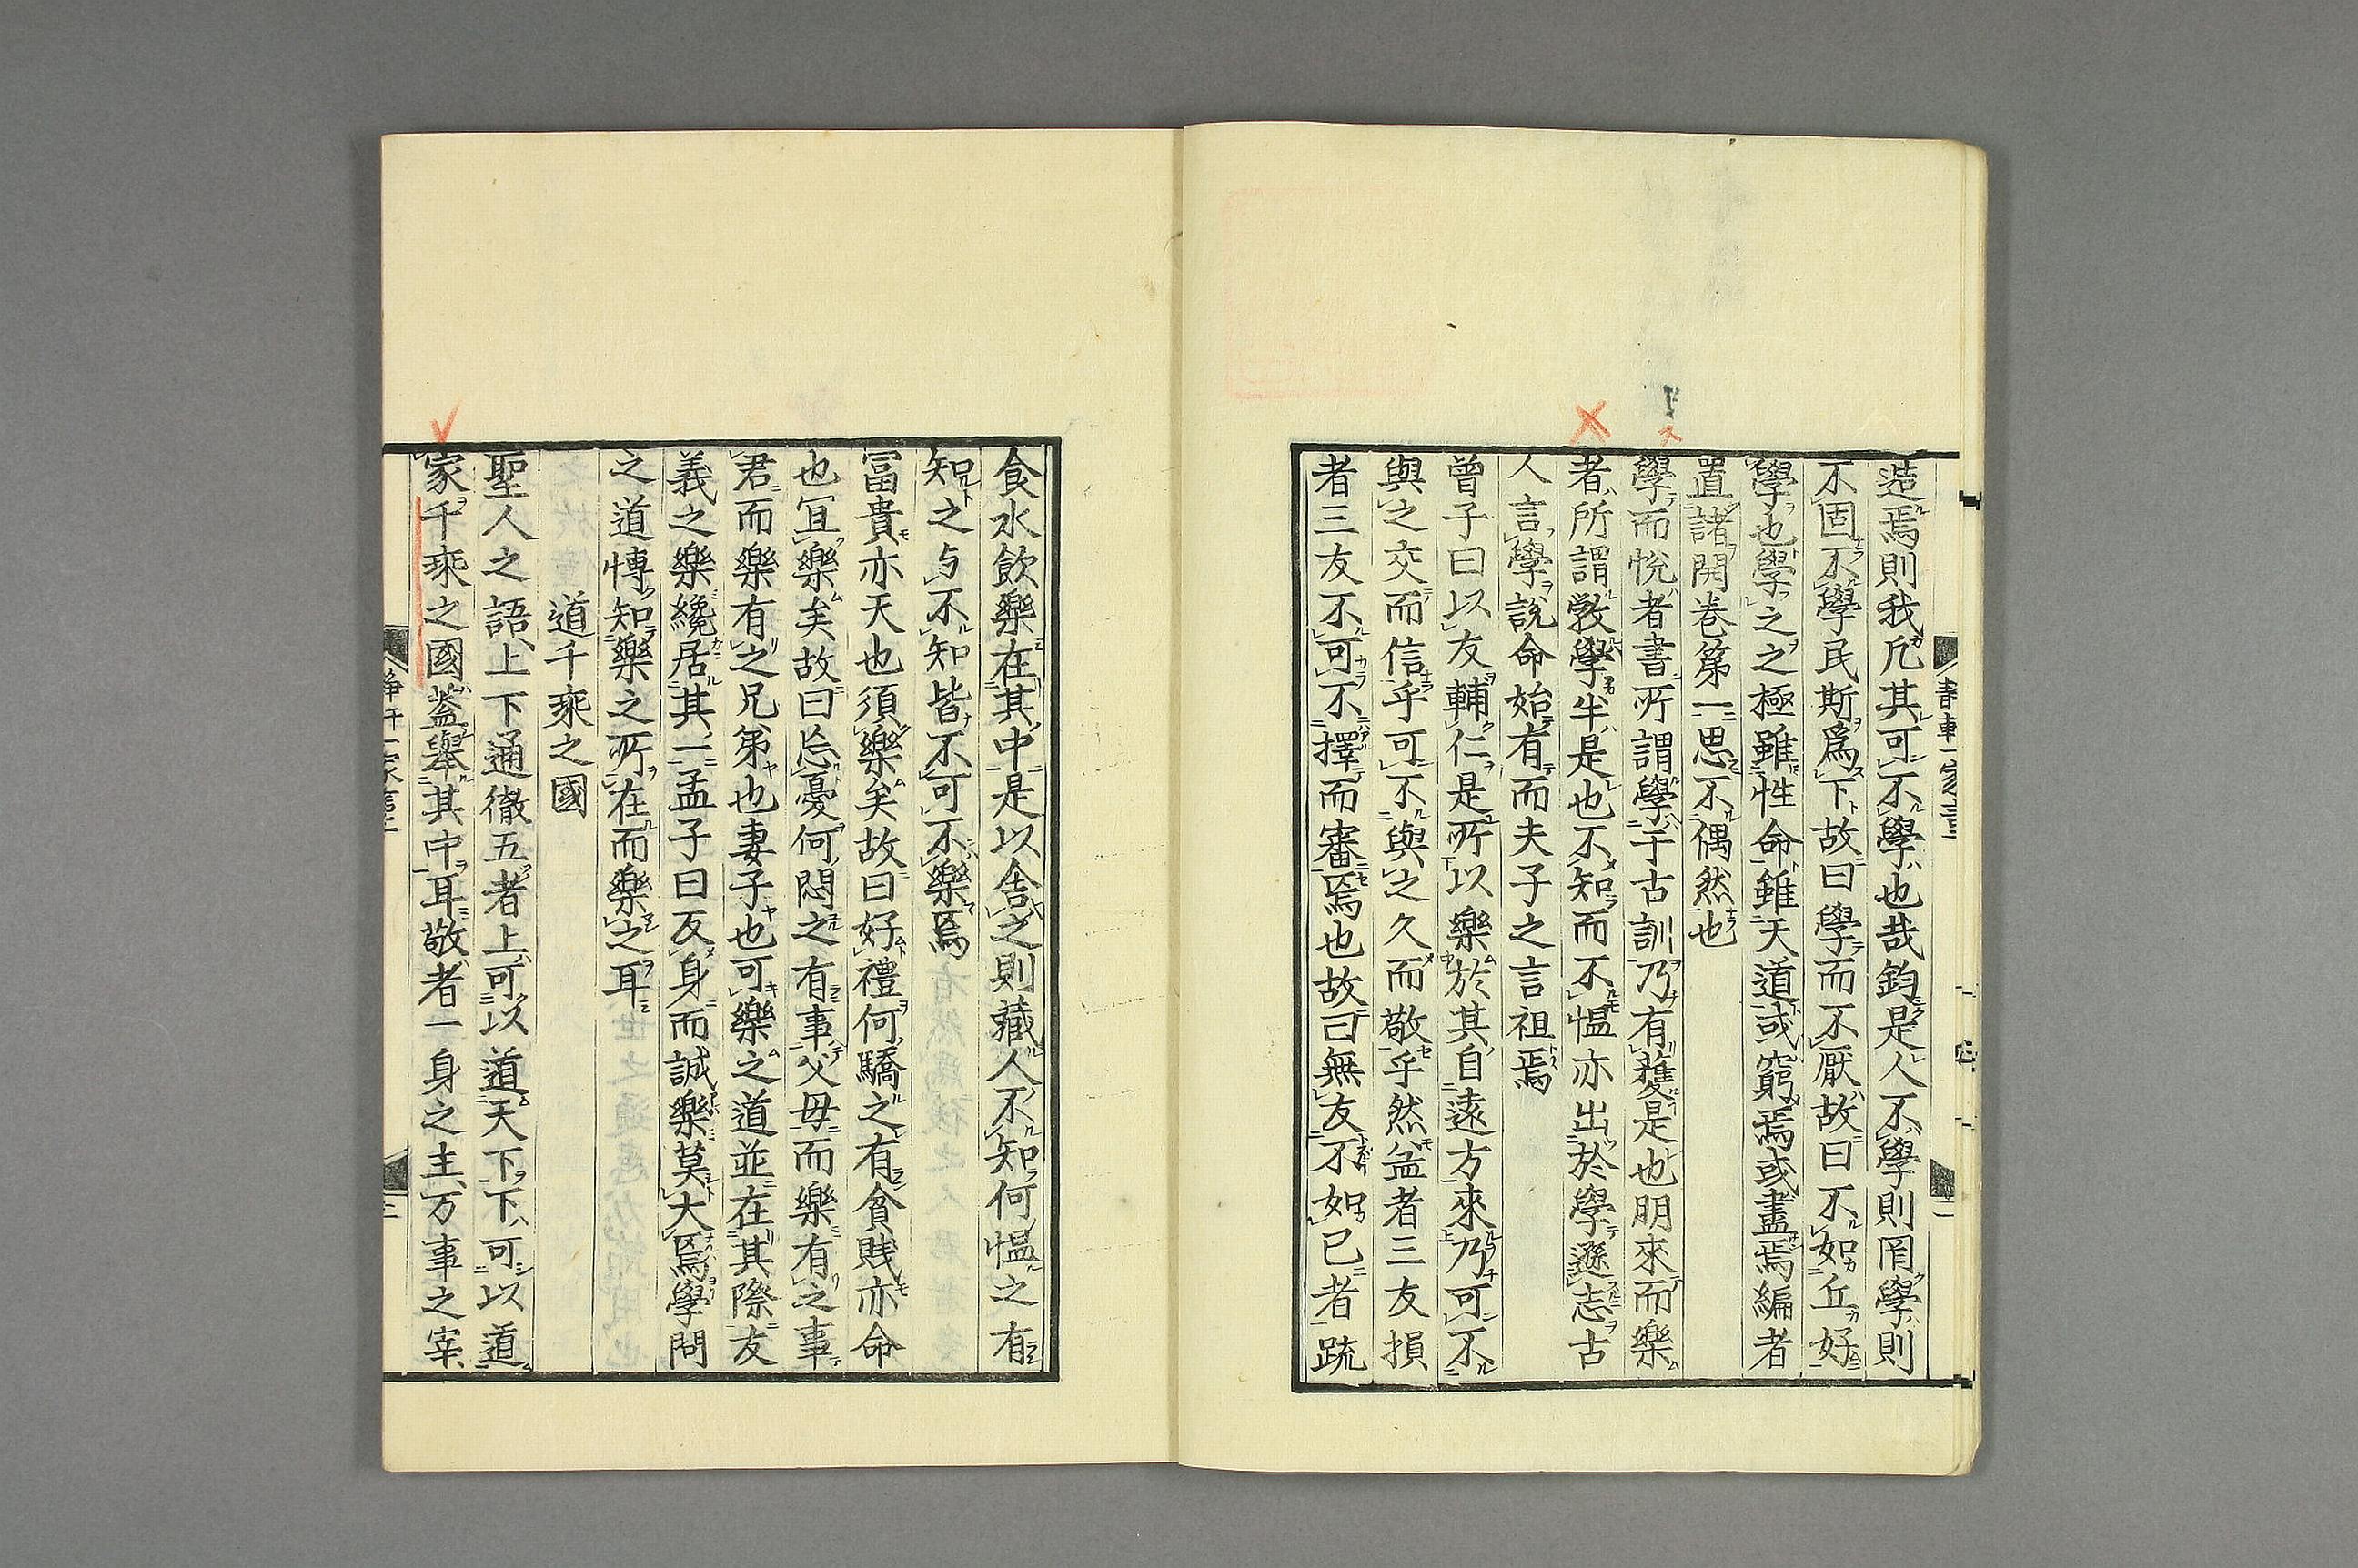 造焉則我凡其可不學也哉鈞是人不學則罔學則
不固不學民斯爲下故曰學而不厭故曰不如丘好
學也學之之極雖性命雖天道或窮焉或盡焉編者
置諸開卷第一思不偶然也
學而悅者書所謂學于古訓乃有獲是也朋來而樂
者所謂斆學半是也不知而不慍亦出於學遜志古
人言學說命始有而夫子之言祖焉
曾子曰以友輔仁是所以樂於其自遠方來乃可不
與之交而信乎可不與之久而敬乎然益者三友損
者三友不可不擇而審焉也故曰無友不如己者疏
食水飲樂在其中是以舍之則藏人不知何慍之有
知之与不知皆不可不樂焉
富貴亦天也須樂矣故曰好禮何驕之有貧賤亦命
也宜樂矣故曰忘憂何悶之有事父母而樂有之事
君而樂有之兄弟也妻子也可樂之道並在其際友
義之樂纔居其一孟子曰反身而誠樂莫大焉學問
之道博知樂之所在而樂之耳
道千乘之國
聖人之語上下通徹五者上可以道天下下可以道
家千乘之國蓋舉其中耳敬者一身之主万事之宰